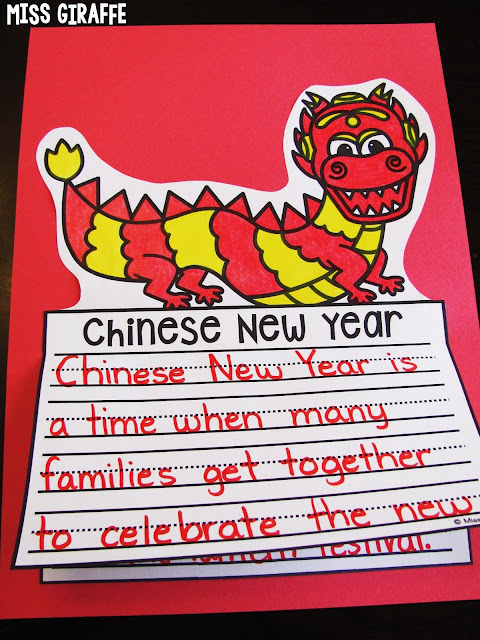 MISS GIRAFFE
Chinese New Year
Chinese New Year is
a time when many
families get together
to celebrate the new
© Miss
festival.